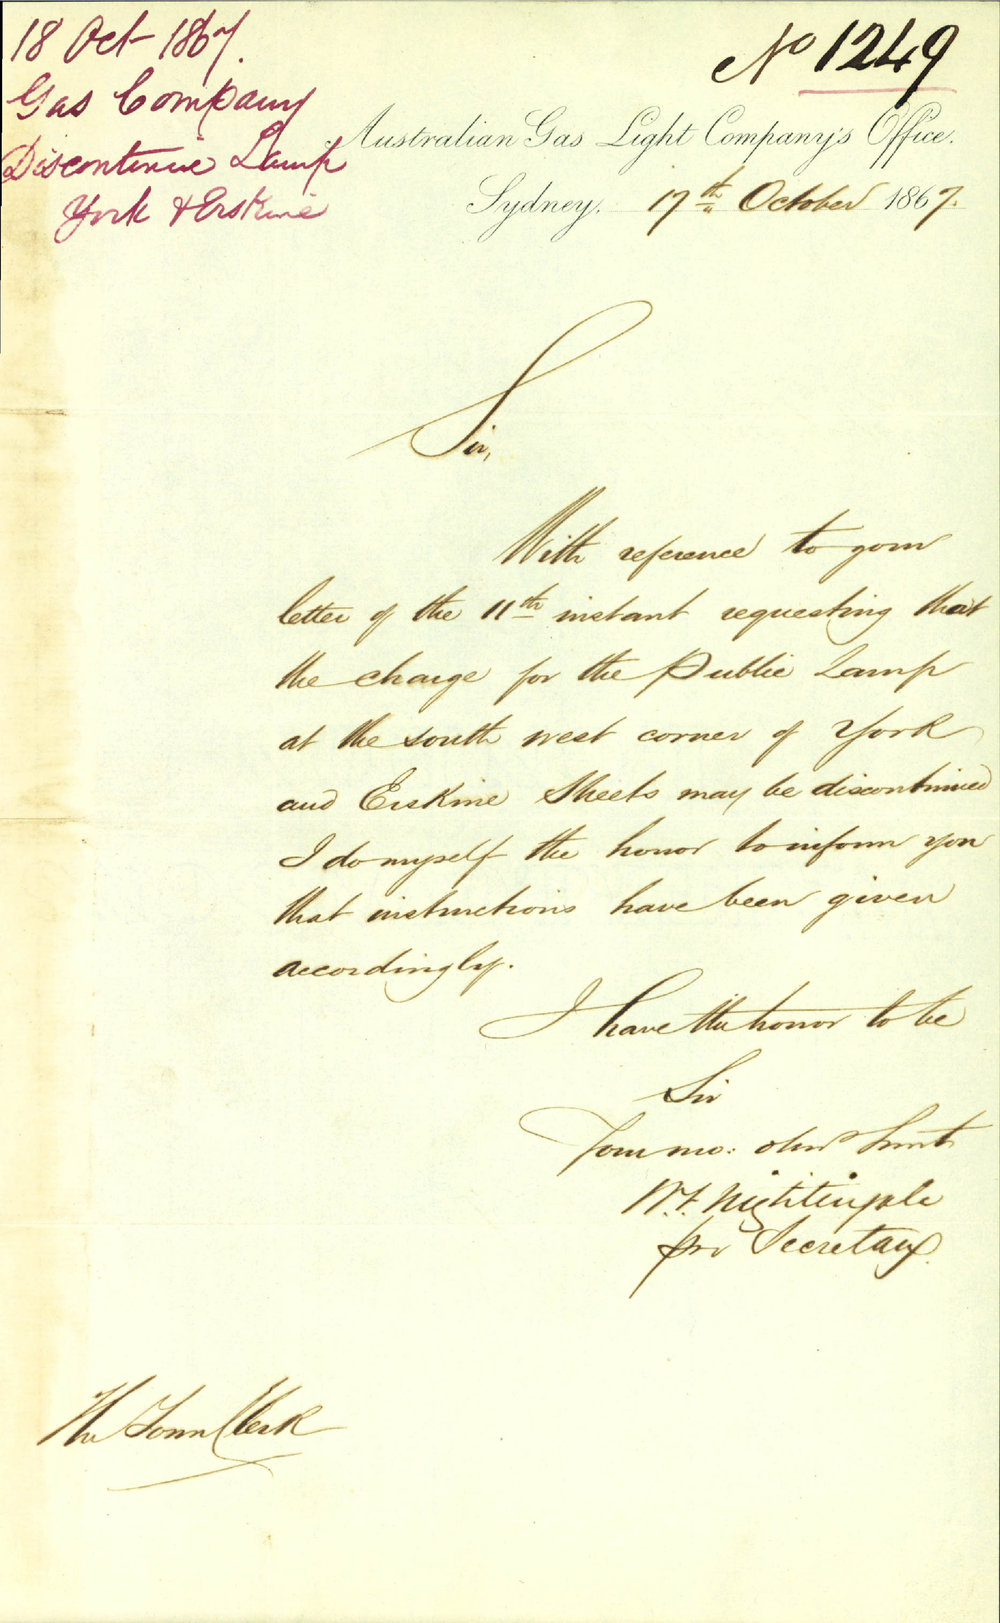 18 Oct 1867.
Gas Company
Discontinue Lamp
York & Erskine
No 1249
Australian Gas Light Company's Office.
Sydney, 17th October 1867.
Sir,
With reference to your
letter of the 11th instant requesting that
the charge for the Public Lamp
at the south west corner of York
and Erskine Streets may be discontinued
I do myself the honor to inform you
that instructions have been given
accordingly.
I have the honor to be
Sir
Your mo: obdt Servt
Nightingale
pro Secretary.
The Town Clerk